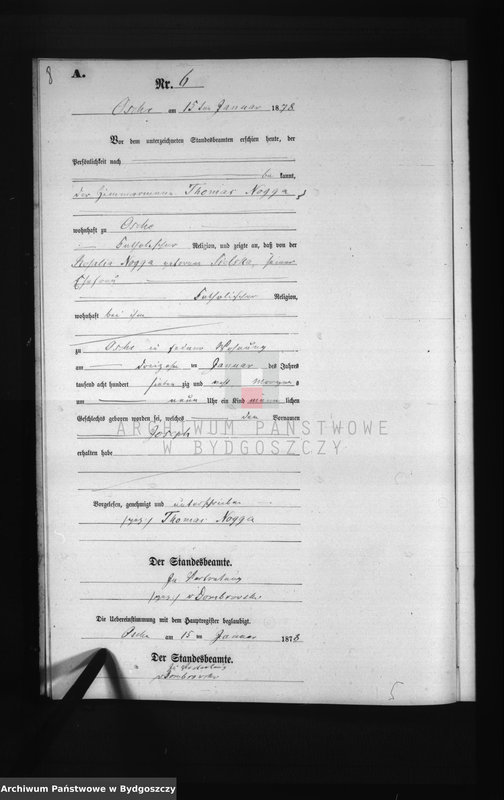 8
A.
Nr. 6
Osche am 15ten Januar 1878
Vor dem unterzeichneten Standesbeamten erschien heute, der
Persönlichkeit nach
be kannt,
der Zimmermann Thomas Nogga
wohnhaft zu Osche
katholischer Religion, und zeigte an, daß von der
Rosalia Nogga geborene seiner
Ehefrau
katholischer Religion,
wohnhaft bei ihm
zu Osche in seiner Wohnung
am dreizehn ten Januar des Jahres
tausend acht hundert sieben zig und acht Morgens
um neun Uhr ein Kind männ lichen
Geschlechts geboren worden sei, welches den Vornamen
Joseph
erhalten habe
Vorgelesen, genehmigt und unterschrieben
(gez.) Thomas Nogga
Der Standesbeamte.
In Vertretung
(gez.) v Dombrowski
Die Uebereinstimmung mit dem Hauptregister beglaubigt.
Osche am 15 ten Januar 1878
Der Standesbeamte.
In Vertretung
v Dombrowski
5
ARCHIWUM PAŃSTWOWE
W BYDGOSZCZY
Archiwum Państwowe w Bydgoszczy